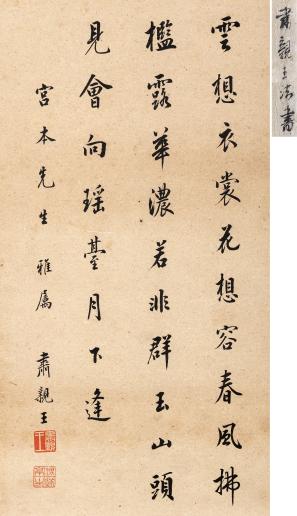 雲想衣裳花想容春風拂
檻露華濃若非群玉山頭
見會向瑶臺月下逢
宮本先生 雅属 肅親王
肅親王法書